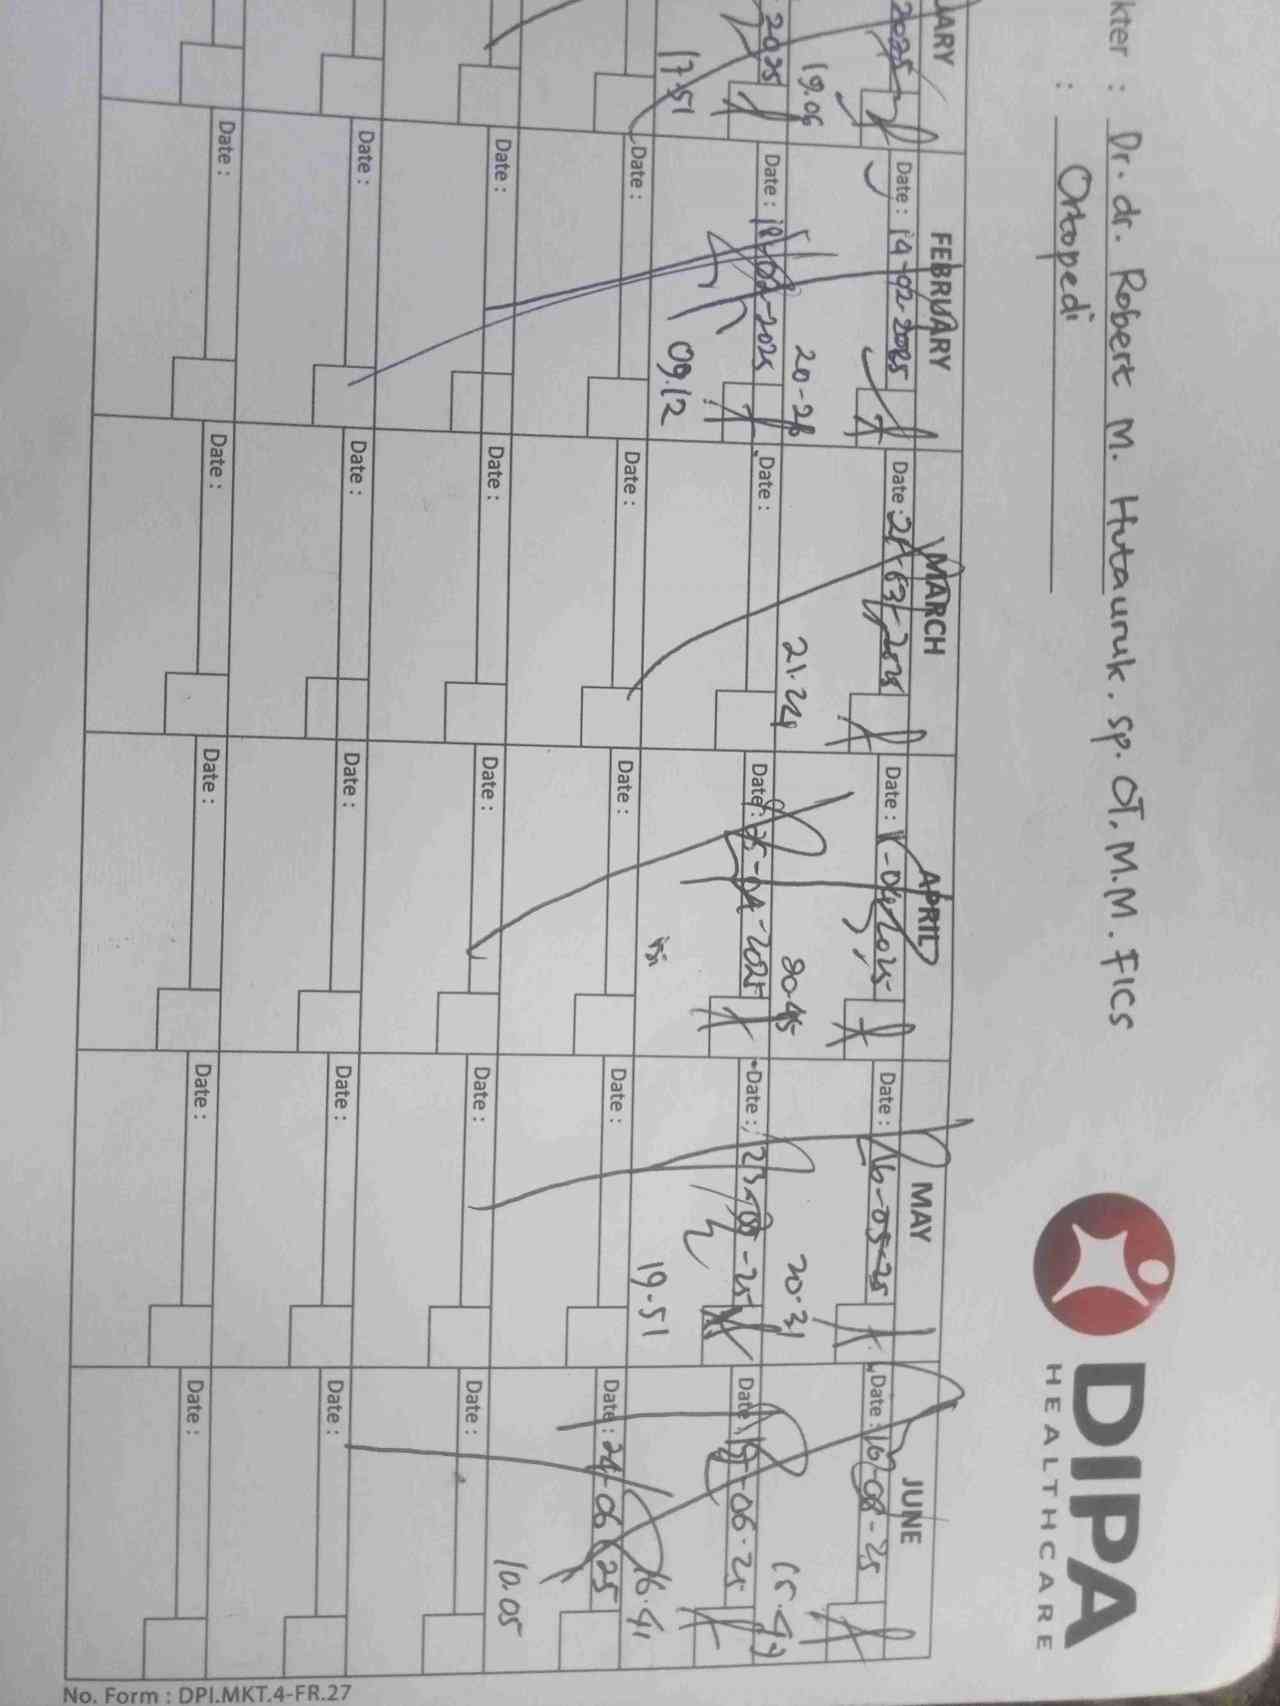 DIPA
HEALTHCARE
kter : Dr. dr. Robert M. Hutauruk. sp. OT. M.M. FICS
: Ortopedi
UARY FEBRUARY MARCH APRIL MAY JUNE
2025 Date : 14-02-2025 Date : Date : Date : 16-05-25 Date :
19.06 20-28 21.24 20.45 20.31 15.49
2025 Date : 18-02-2025 Date : Date : 25-04-2025 Date : Date : 19-06-25
17.51 09.12 19.51 16.41
Date : Date : Date : Date : Date : 24-06-25
10.05
Date : Date : Date : Date : Date :
Date : Date : Date : Date : Date :
Date : Date : Date : Date : Date :
No. Form : DPI.MKT.4-FR.27